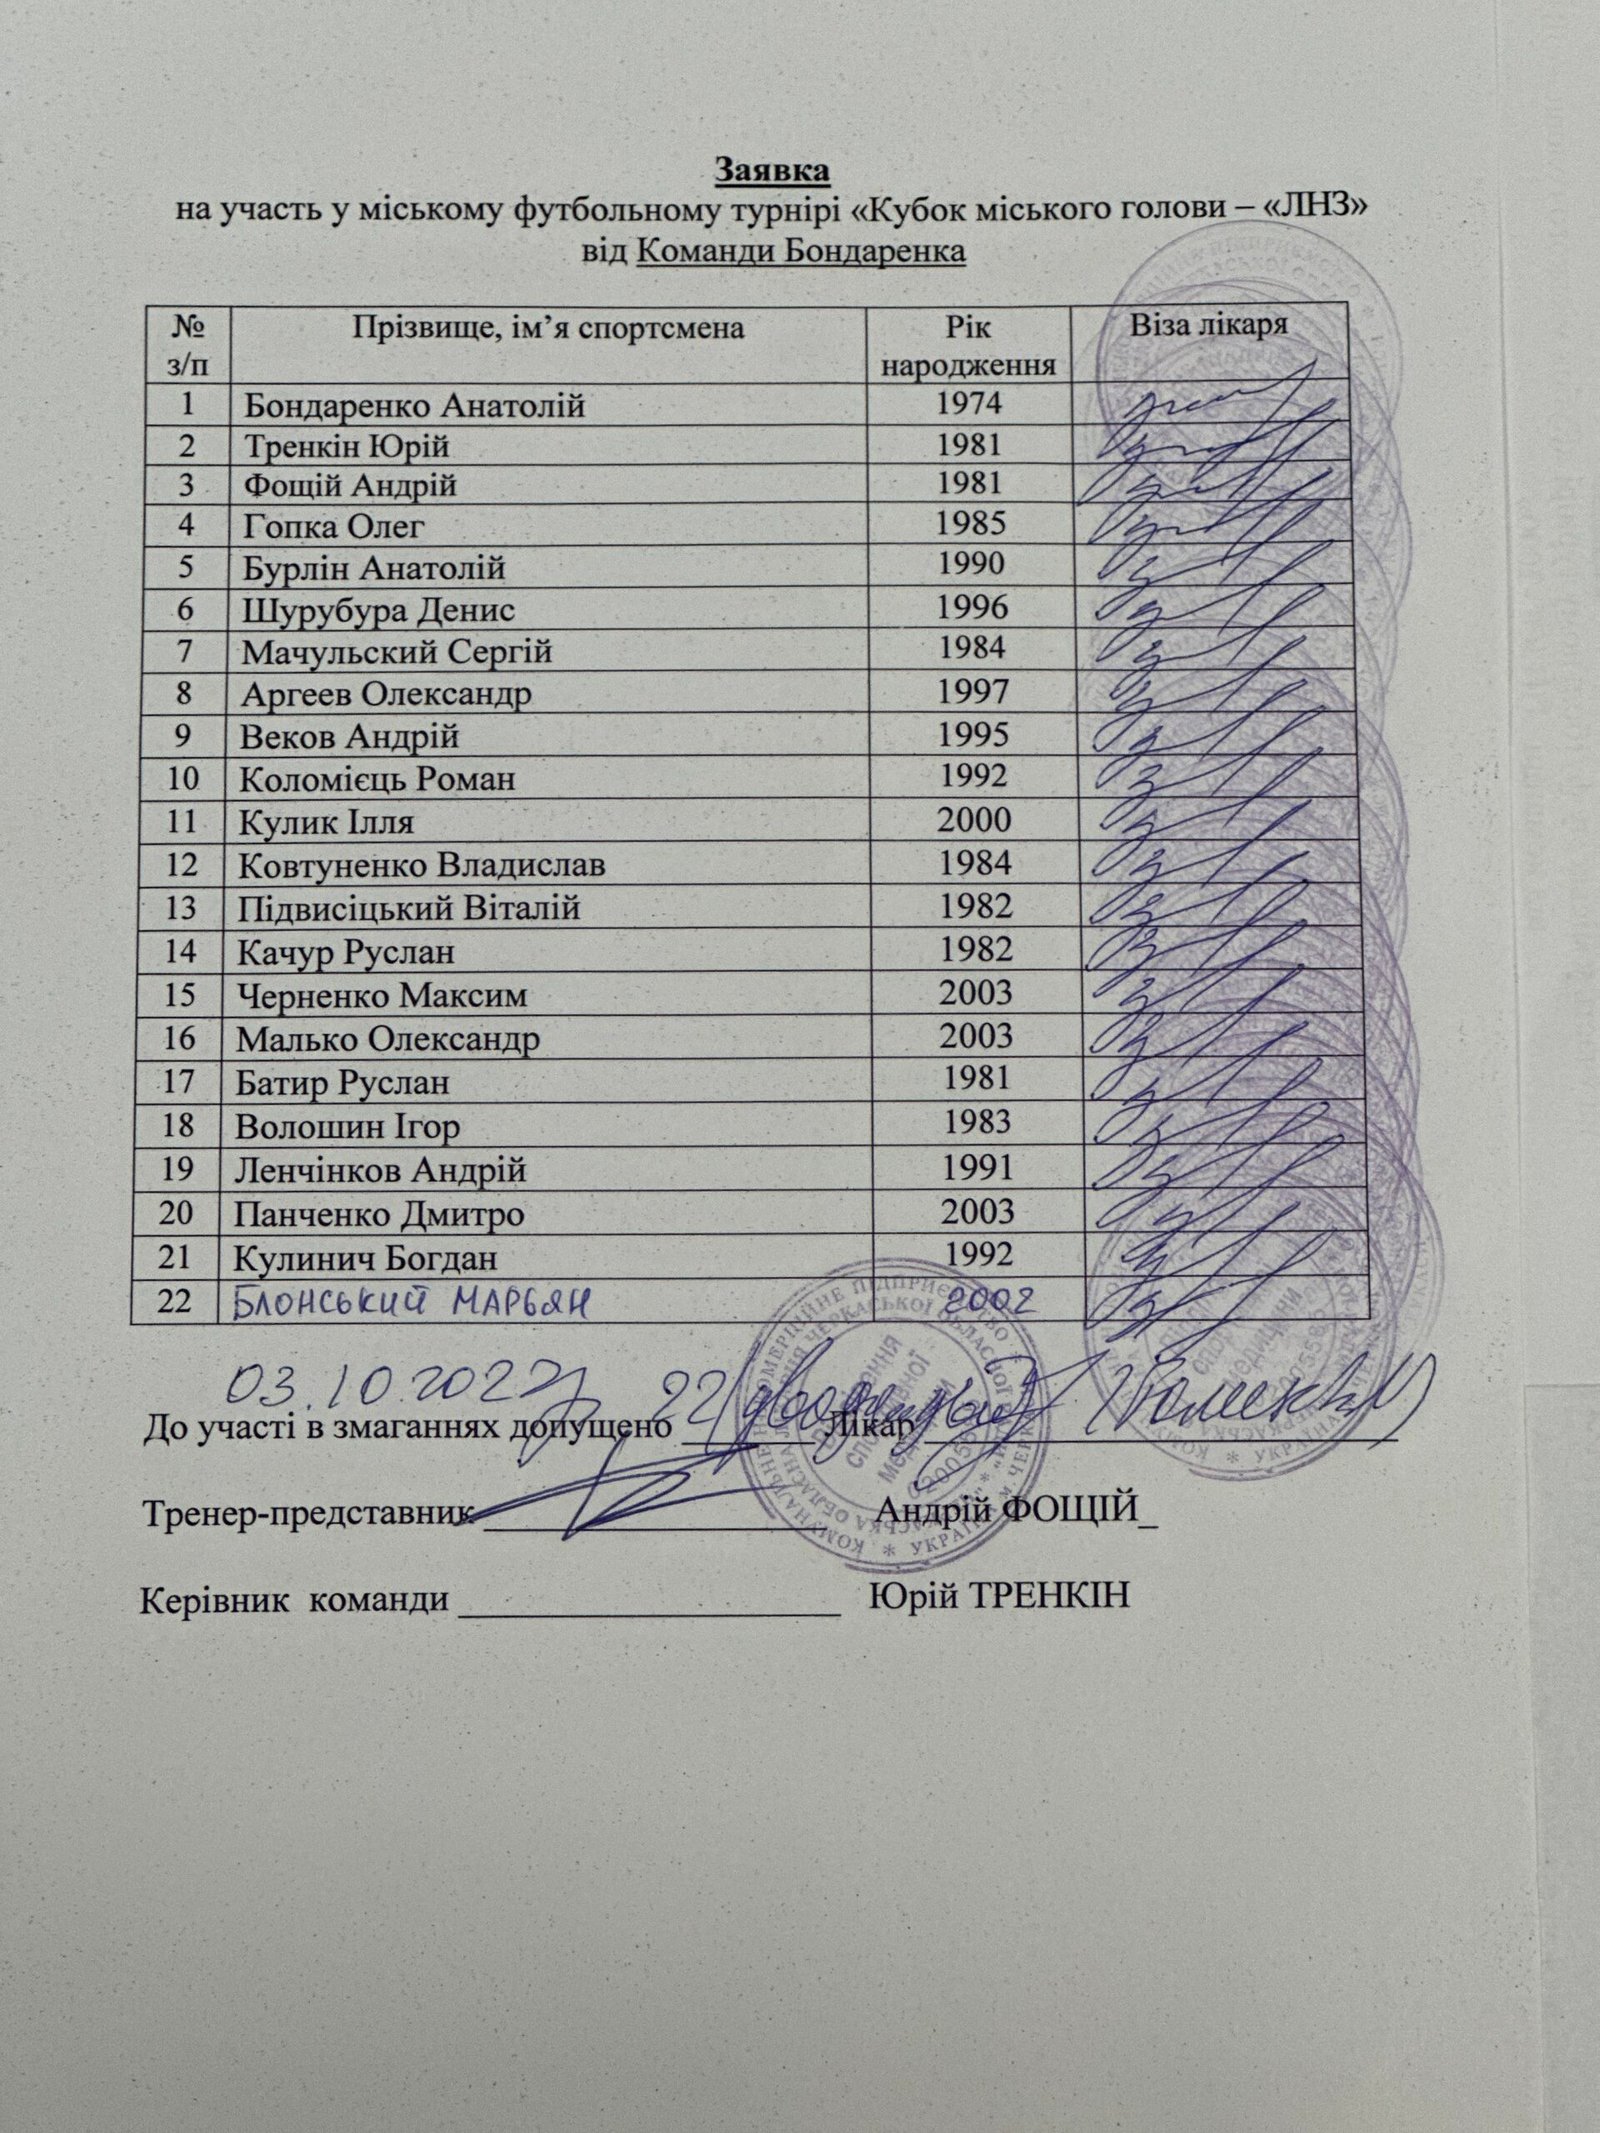 Заявка
на участь у міському футбольному турнірі «Кубок міського голови – «ЛНЗ»
від Команди Бондаренка
№ з/п Прізвище, ім’я спортсмена Рік народження Віза лікаря
1 Бондаренко Анатолій 1974
2 Тренкін Юрій 1981
3 Фощій Андрій 1981
4 Гопка Олег 1985
5 Бурлін Анатолій 1990
6 Шурубура Денис 1996
7 Мачульский Сергій 1984
8 Аргеев Олександр 1997
9 Веков Андрій 1995
10 Коломієць Роман 1992
11 Кулик Ілля 2000
12 Ковтуненко Владислав 1984
13 Підвисіцький Віталій 1982
14 Качур Руслан 1982
15 Черненко Максим 2003
16 Малько Олександр 2003
17 Батир Руслан 1981
18 Волошин Ігор 1983
19 Ленчінков Андрій 1991
20 Панченко Дмитро 2003
21 Кулинич Богдан 1992
22 БЛОНСЬКИЙ МАРЬЯН 2002
03.10.2022
До участі в змаганнях допущено 22 Лікар
Тренер-представник Андрій ФОЩІЙ_
Керівник команди Юрій ТРЕНКІН